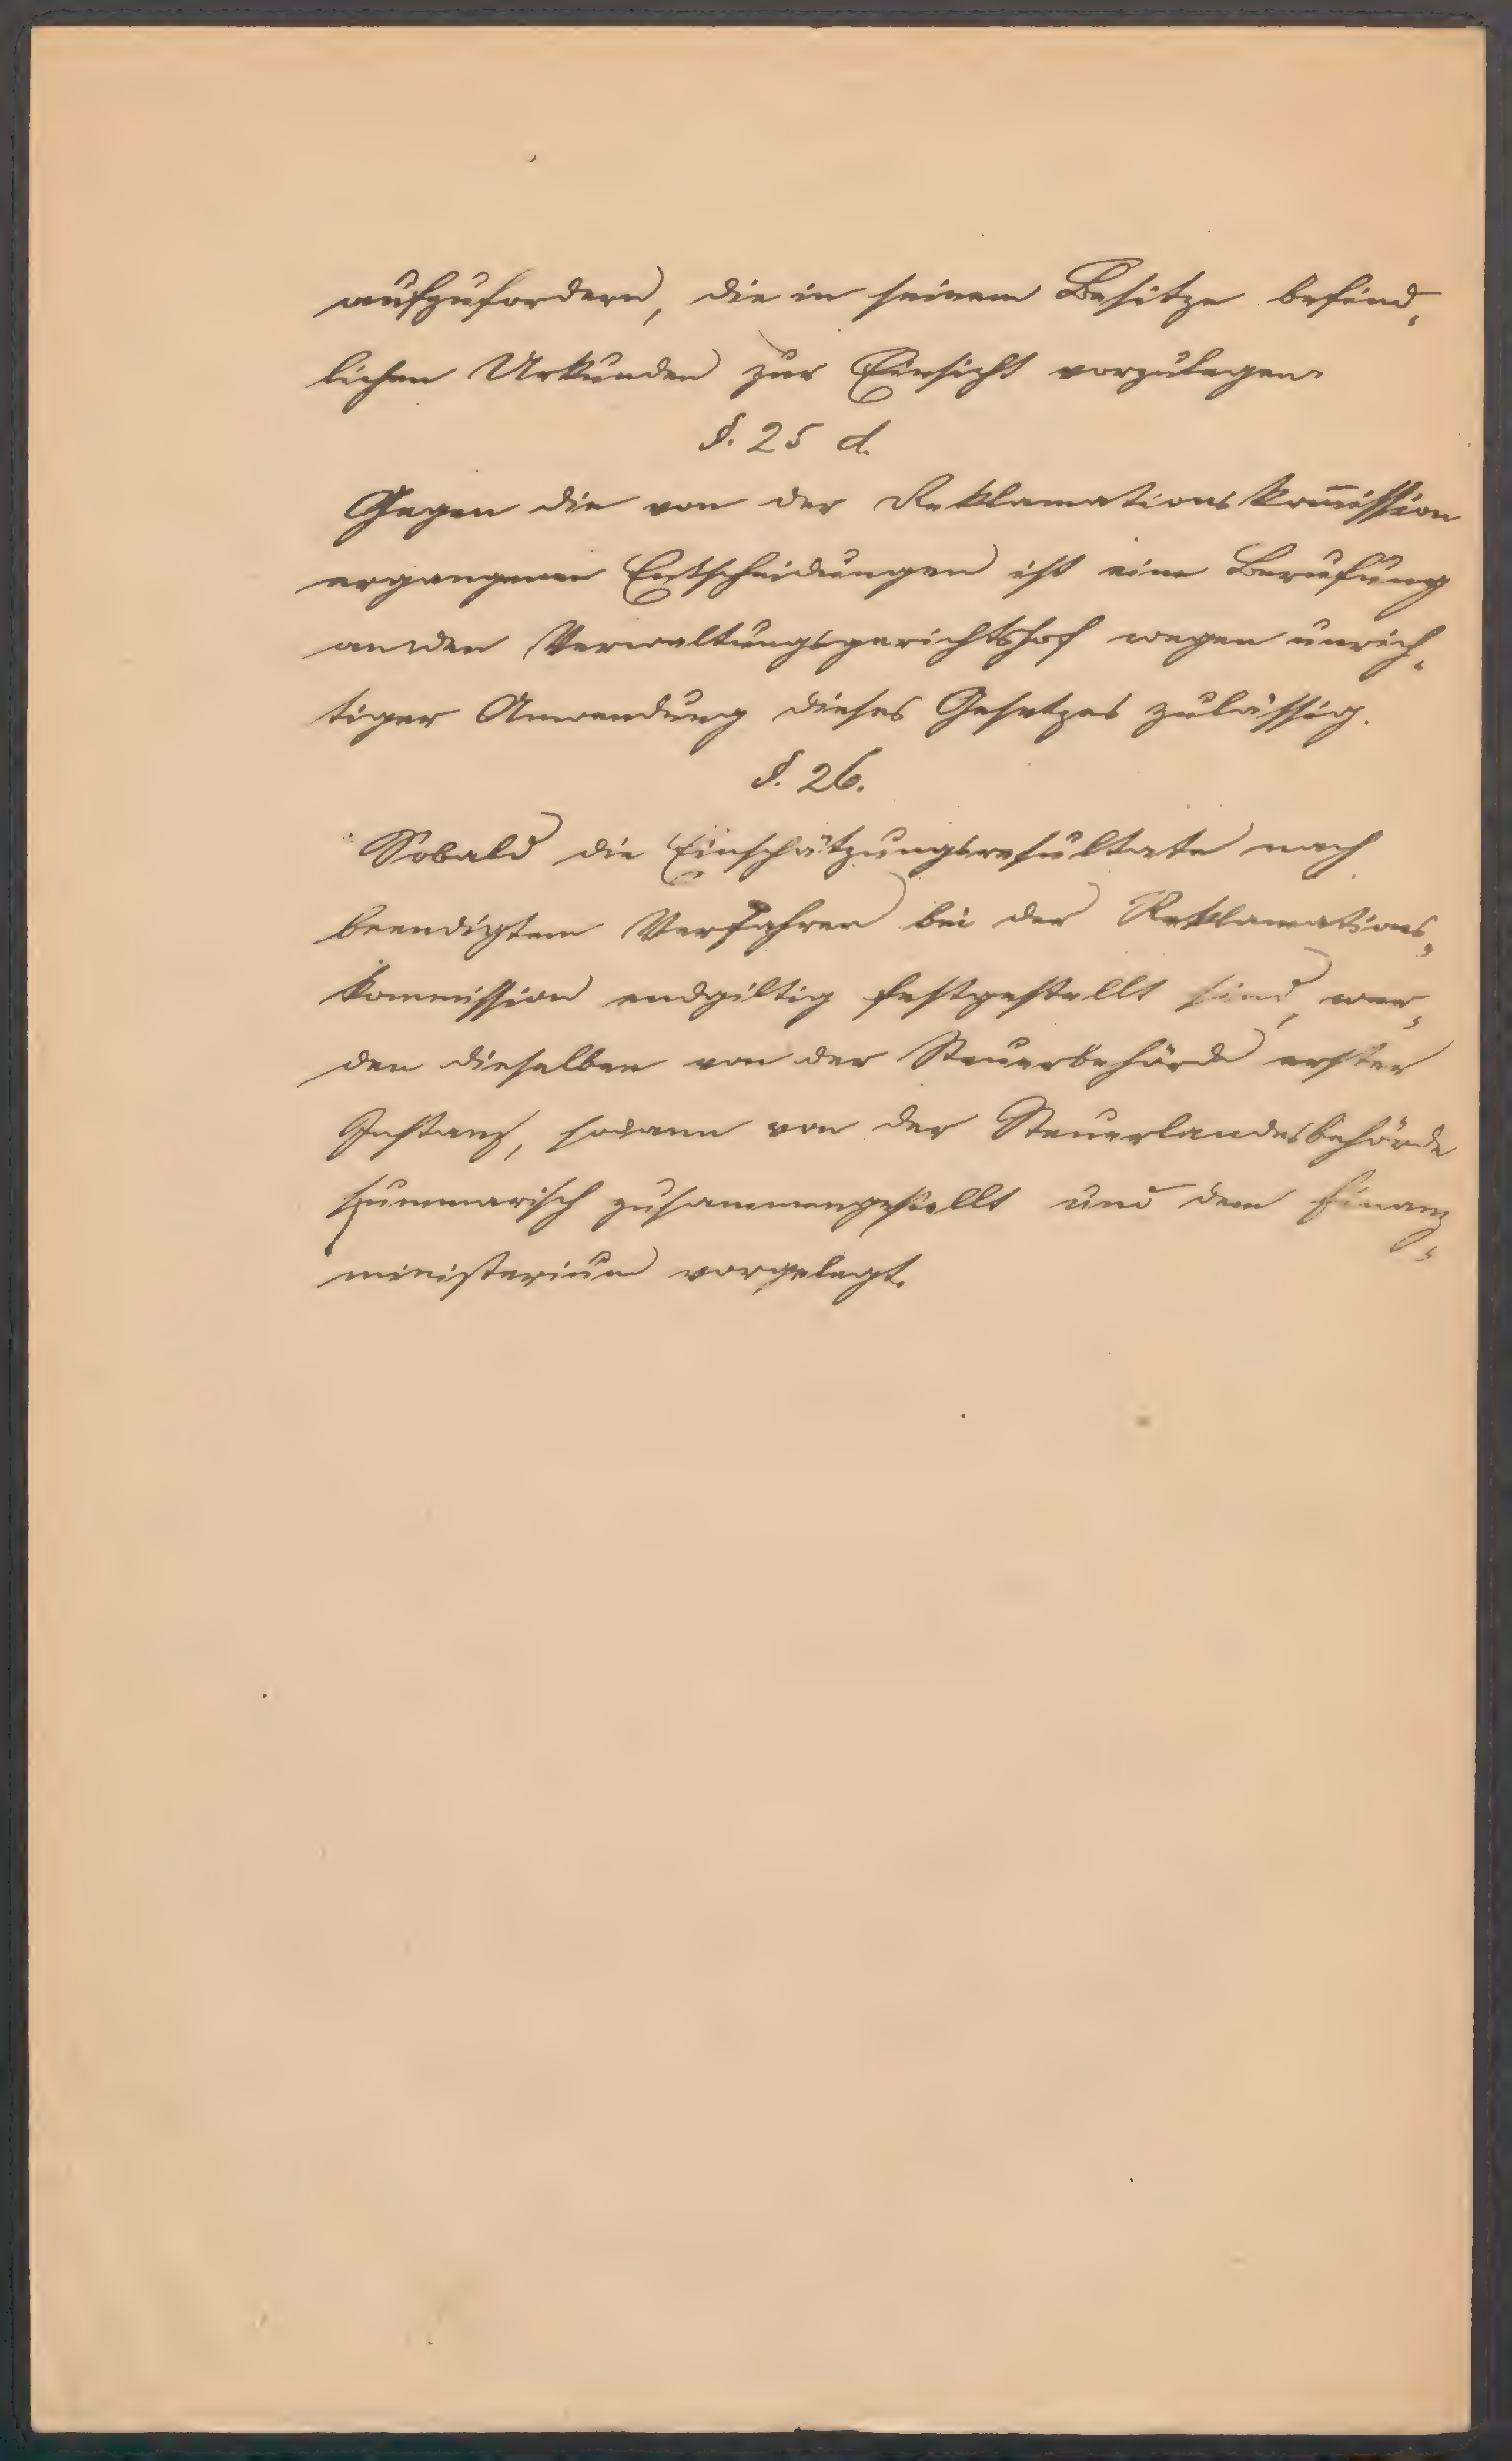 aufzufordern, die in seinem Besitze befind-
lichen Urkunden zur Einsicht vorzulegen.
§. 25 d.
Gegen die von der Reklamationskom̅ission
ergangenen Entscheidungen ist eine Berufung
an den Verwaltungsgerichtshof wegen unrich-
tiger Anwendung dieses Gesetzes zulässig.
§. 26.
Sobald die Einschätzungsresultate nach
beendigtem Verfahren bei der Reklamations-
kommission endgiltig festgestellt sind, wer-
den dieselben von der Steuerbehörde erster
Instanz, sodann von der Steuerlandesbehörde
summarisch zusammengestellt und dem Finanz-
ministerium vorgelegt.